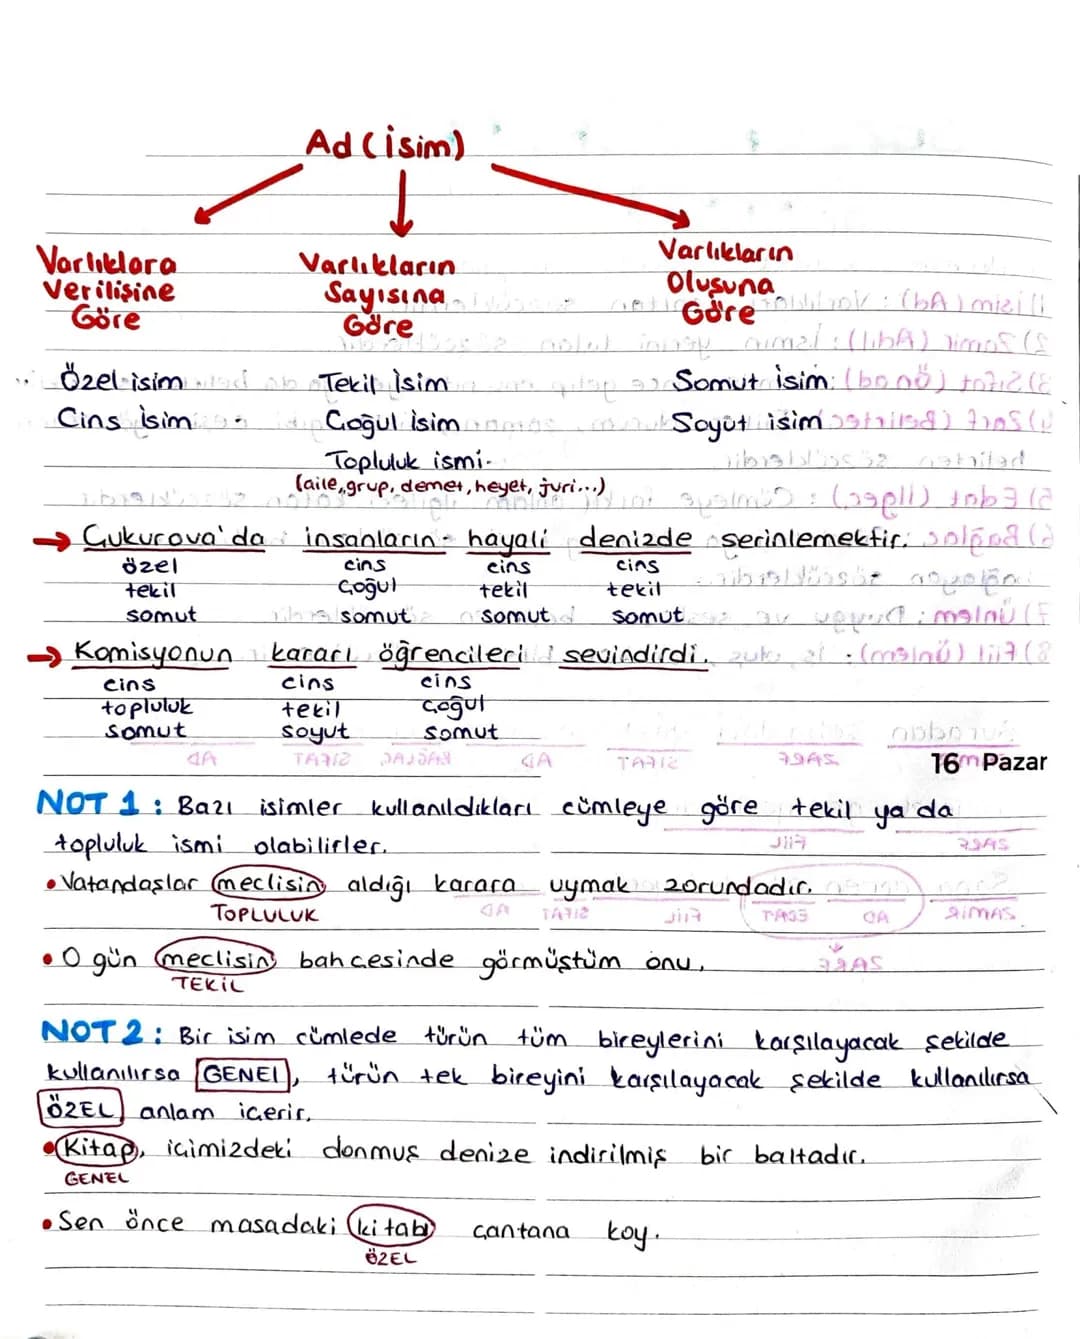 Ad (isim)
Varlıklara Verilişine Göre
Varlıkların Sayısına Göre
Varlıkların Oluşuna Göre
Özel isim
Cins İsim
Tekil İsim
Çoğul İsim
Topluluk ismi
(aile, grup, demet, heyet, juri...)
Somut isim
Soyut isim
→ Çukurova'da insanların hayali denizde serinlemektir.
özel cins cins cins
tekil çoğul tekil tekil
somut somut somut somut
→ Komisyonun kararı öğrencileri sevindirdi.
cins cins cins
topluluk tekil çoğul
somut soyut somut
16 Pazar
NOT 1: Bazı isimler kullanıldıkları cümleye göre tekil ya da
topluluk ismi olabilirler.
• Vatandaşlar meclisin aldığı karara uymak zorundadır.
TOPLULUK
• O gün meclisin bahçesinde görmüştüm onu.
TEKİL
NOT 2: Bir isim cümlede türün tüm bireylerini karşılayacak şekilde
kullanılırsa GENEL, türün tek bireyini karşılayacak şekilde kullanılırsa
ÖZEL anlam içerir.
• Kitap, içimizdeki donmuş denize indirilmiş bir baltadır.
GENEL
• Sen önce masadaki kitabı çantana koy.
ÖZEL